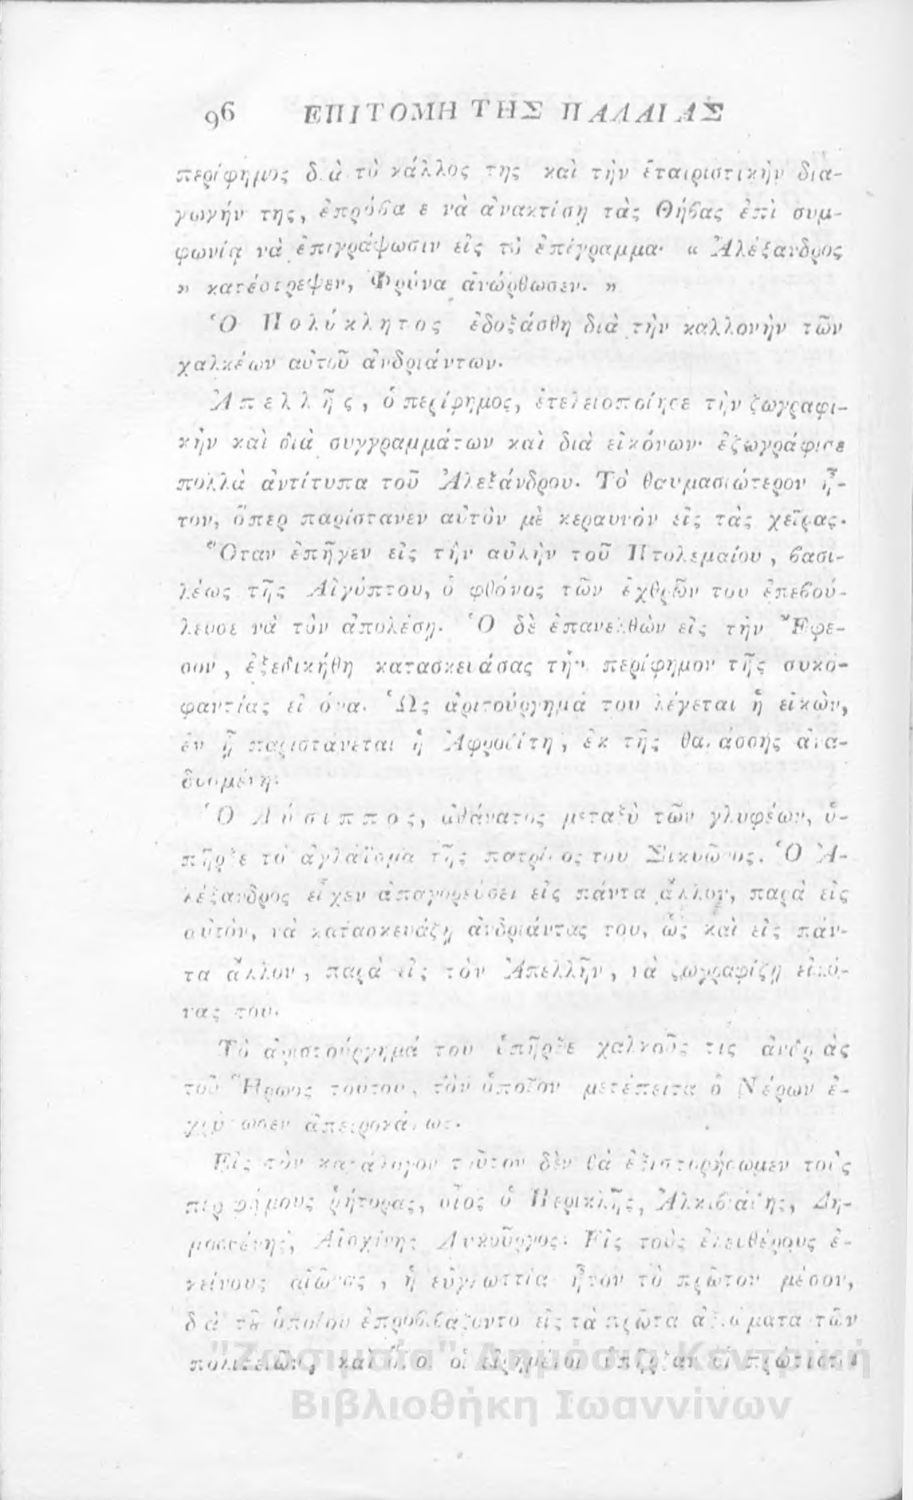 96 ΕΠΙΤΟΜΗ ΤΗΣ ΠΑΛΑΙΑΣ
περίφημος διὰ τὸ κάλλος της καὶ τὴν ἑταιριστικὴν δια-
γωγήν της, ἐπρόβα ε νὰ ἀνακτίσῃ τὰς Θήβας ἐπὶ συμ-
φωνίᾳ νὰ ἐπιγράψωσιν εἰς τὸ ἐπίγραμμα· « Ἀλέξανδρος
» κατέστρεψεν, Φρύνα ἀνώρθωσεν. »
Ὁ Πολύκλητος ἐδοξάσθη διὰ τὴν καλλονὴν τῶν
χαλκέων αὐτοῦ ἀνδριάντων.
Ἀπελλῆς, ὁ περίφημος, ἐτελειοποίησε τὴν ζωγραφι-
κὴν καὶ διὰ συγγραμμάτων καὶ διὰ εἰκόνων· ἐζωγράφισε
πολλὰ ἀντίτυπα τοῦ Ἀλεξάνδρου. Τὸ θαυμασιώτερον ἦ-
τον, ὅπερ παρίστανεν αὐτὸν μὲ κεραυνὸν εἰς τὰς χεῖρας.
Ὅταν ἐπῆγεν εἰς τὴν αὐλὴν τοῦ Πτολεμαίου, βασι-
λέως τῆς Αἰγύπτου, ὁ φθόνος τῶν ἐχθρῶν του ἐπεβού-
λευσε νὰ τὸν ἀπολέσῃ. Ὁ δὲ ἐπανελθὼν εἰς τὴν Ἔφε-
σον, ἐξεδικήθη κατασκευάσας τὴν περίφημον τῆς συκο-
φαντίας εἰκόνα. Ὡς ἀριστούργημά του λέγεται ἡ εἰκὼν,
ἐν ᾗ παριστάνεται ἡ Ἀφροδίτη, ἐκ τῆς θαλάσσης ἀνα-
δυομένη.
Ὁ Λύσιππος, ἀθάνατος μεταξὺ τῶν γλυφέων, ὑ-
πῆρξε τὸ ἀγλάϊσμα τῆς πατρίδος του Σικυῶνος. Ὁ Ἀ-
λέξανδρος εἶχεν ἀπαγορεύσει εἰς πάντα ἄλλον, παρὰ εἰς
αὐτὸν, νὰ κατασκευάζῃ ἀνδριάντας του, ὡς καὶ εἰς πάν-
τα ἄλλον, παρὰ εἰς τὸν Ἀπελλῆν, νὰ ζωγραφίζῃ εἰκό-
νας του.
Τὸ ἀριστούργημά του ὑπῆρξε χαλκοῦς τις ἀνδριὰς
τοῦ Ἥρωος τούτου, τὸν ὁποῖον μετέπειτα ὁ Νέρων ἐ-
χρύσωσεν ἀπειροκάλως.
Εἰς τὸν κατάλογον τοῦτον δὲν θὰ ἐξιστορήσωμεν τοὺς
περιφήμους ῥήτορας, οἷος ὁ Περικλῆς, Ἀλκιβιάδης, Δη-
μοσθένης, Αἰσχίνης Λυκοῦργος. Εἰς τοὺς ἐλευθέρους ἐ-
κείνους αἰῶνας, ἡ εὐγλωττία ἦτον τὸ πρῶτον μέσον,
διὰ τοῦ ὁποίου ἐπροβιβάζοντο εἰς τὰ πρῶτα ἀξιώματα τῶν
πολιτειῶν, καὶ οἱ ὑπῆρξαν οἱ
"Ζωσιμαία" Δημόσια Κεντρική
Βιβλιοθήκη Ιωαννίνων